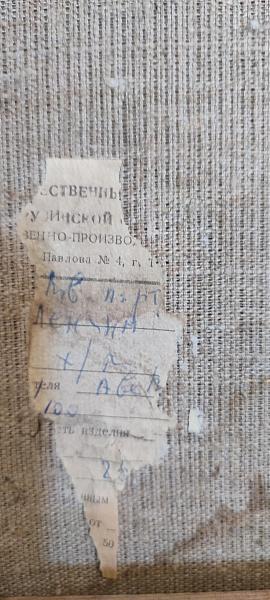 ЕСТВЕННЫ
УЗИНСКОЙ
ВЕННО-ПРОИЗВО
Павлова № 4, г. Т
порт
Ленина
х/
теля
100
ть изделия
25
нным
от
50